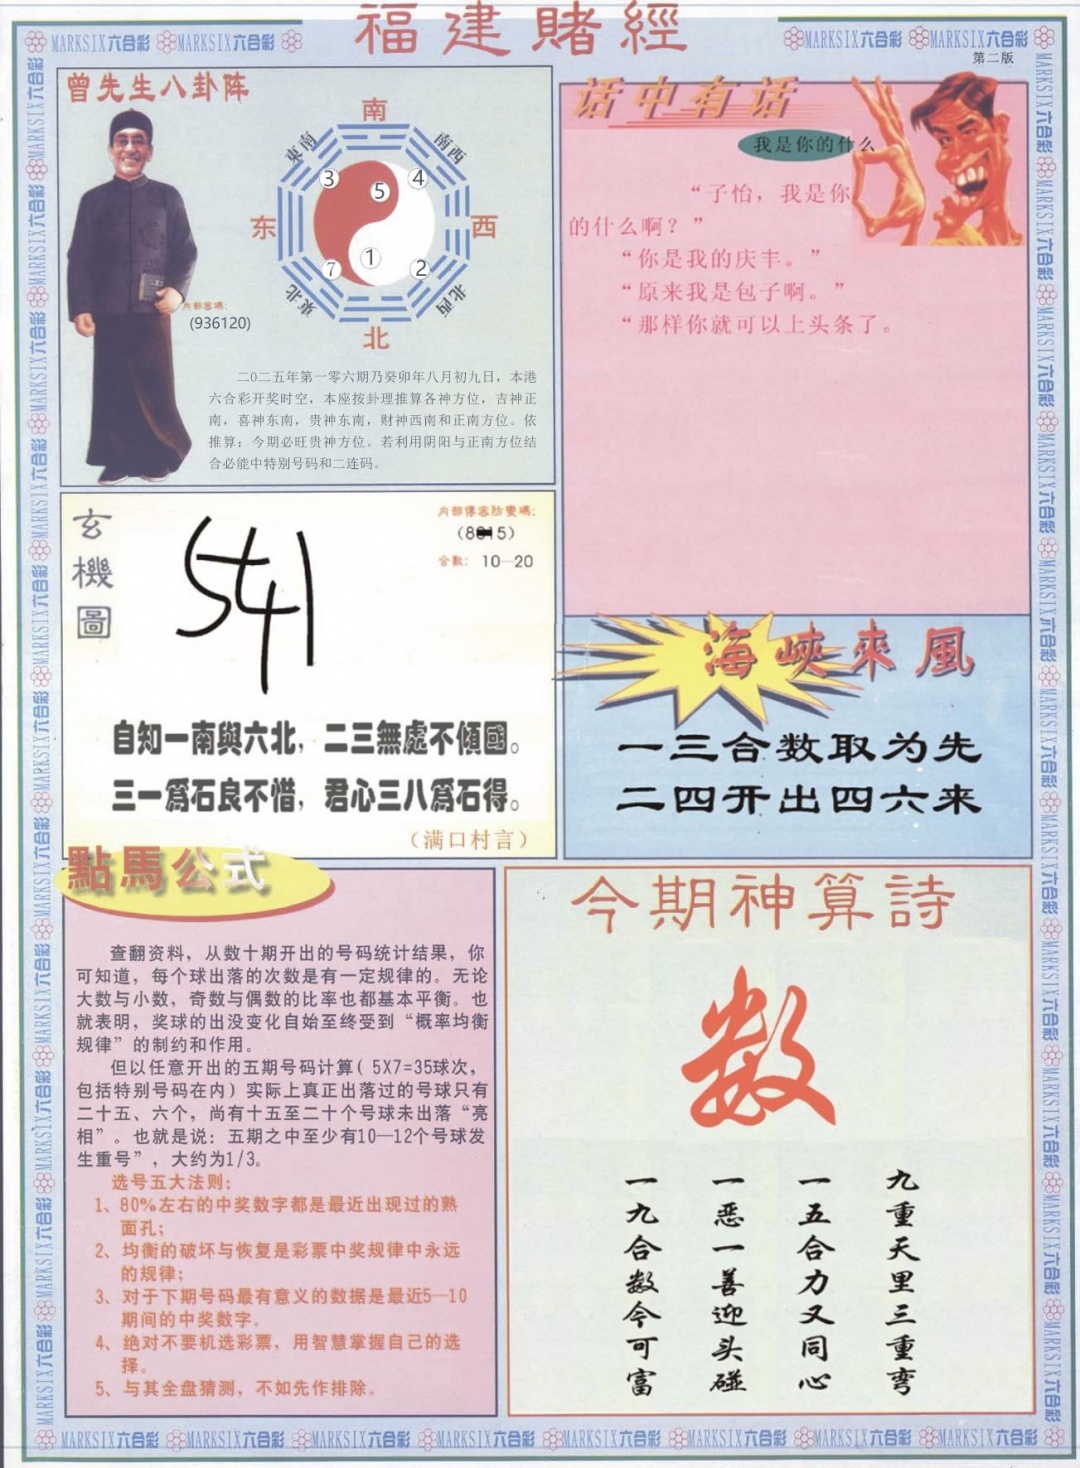 福建賭經
MARKSIX六合彩 MARKSIX六合彩 MARKSIX六合彩 MARKSIX六合彩
第二版
曾先生八卦阵
南
東南 南西
3 5 4
东 西
7 1 2
東北 北西
北
内部密碼:
(936120)
二0二五年第一零六期乃癸卯年八月初九日，本港
六合彩开奖时空，本座按卦理推算各神方位，吉神正
南，喜神东南，贵神东南，财神西南和正南方位。依
推算：今期必旺贵神方位。若利用阴阳与正南方位结
合必能中特别号码和二连码。
话中有话
我是你的什么
“子怡，我是你
的什么啊？”
“你是我的庆丰。”
“原来我是包子啊。”
“那样你就可以上头条了。
玄機圖
541
内部傳密防變碼:
合數: 10—20
自知一南與六北，二三無處不傾國。
三一爲石良不惜，君心三八爲石得。
（满口村言）
海峽來風
一三合数取为先
二四开出四六来
點馬公式
查翻资料，从数十期开出的号码统计结果，你
可知道，每个球出落的次数是有一定规律的。无论
大数与小数，奇数与偶数的比率也都基本平衡。也
就表明，奖球的出没变化自始至终受到“概率均衡
规律”的制约和作用。
但以任意开出的五期号码计算( 5X7=35球次，
包括特别号码在内）实际上真正出落过的号球只有
二十五、六个，尚有十五至二十个号球未出落“亮
相”。也就是说：五期之中至少有10—12个号球发
生重号”，大约为1/3。
选号五大法则：
1、80%左右的中奖数字都是最近出现过的熟
面孔；
2、均衡的破坏与恢复是彩票中奖规律中永远
的规律；
3、对于下期号码最有意义的数据是最近5—10
期间的中奖数字。
4、绝对不要机选彩票，用智慧掌握自己的选
择。
5、与其全盘猜测，不如先作排除。
今期神算詩
数
九重天里三重弯
一五合力又同心
一恶一善迎头碰
一九合数今可富
MARKSIX六合彩 MARKSIX六合彩 MARKSIX六合彩 MARKSIX六合彩 MARKSIX六合彩 MARKSIX六合彩 MARKSIX六合彩 MARKSIX六合彩